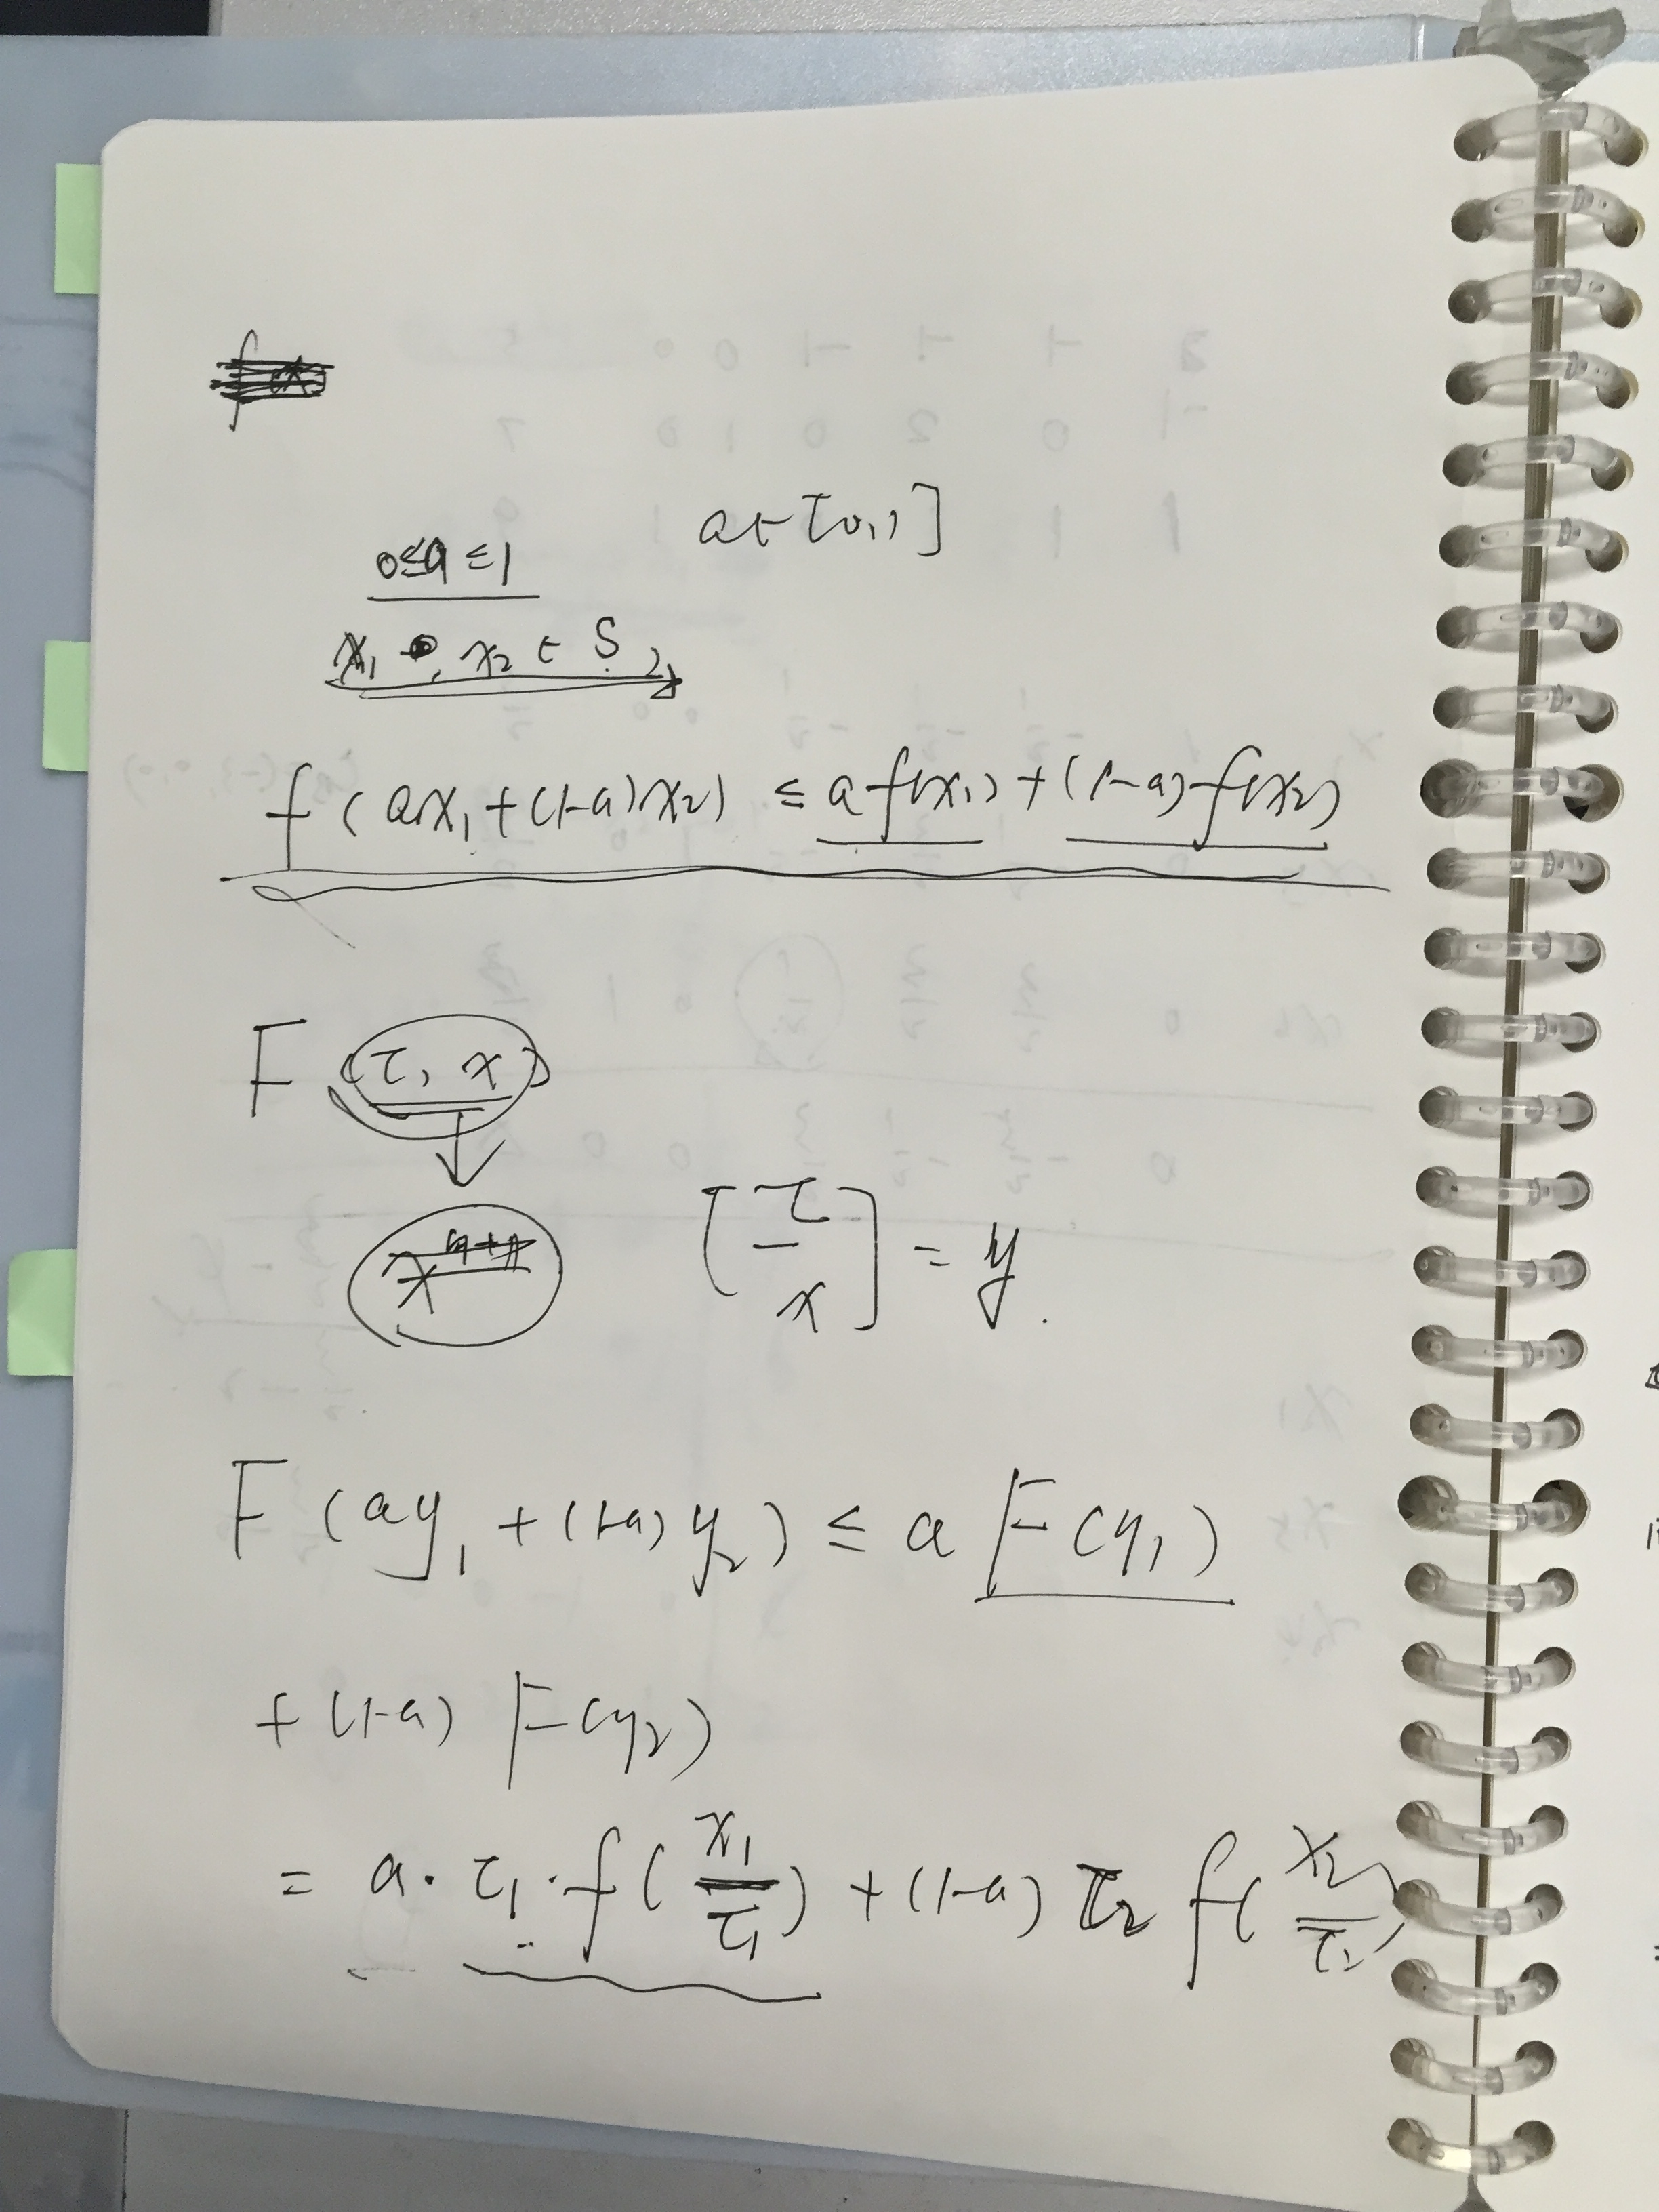 a ∈ [0,1]
0≤a≤1
x₁, x₂ ∈ S
f(ax₁+(1-a)x₂) ≤ af(x₁)+(1-a)f(x₂)
F(τ, x)
[τ
—
x] = y.
F(ay₁+(1-a)y₂) ≤ a F(y₁)
+(1-a) F(y₂)
= a·τ₁·f(x₁/τ₁)+(1-a)τ₂ f(x₂/τ₂)